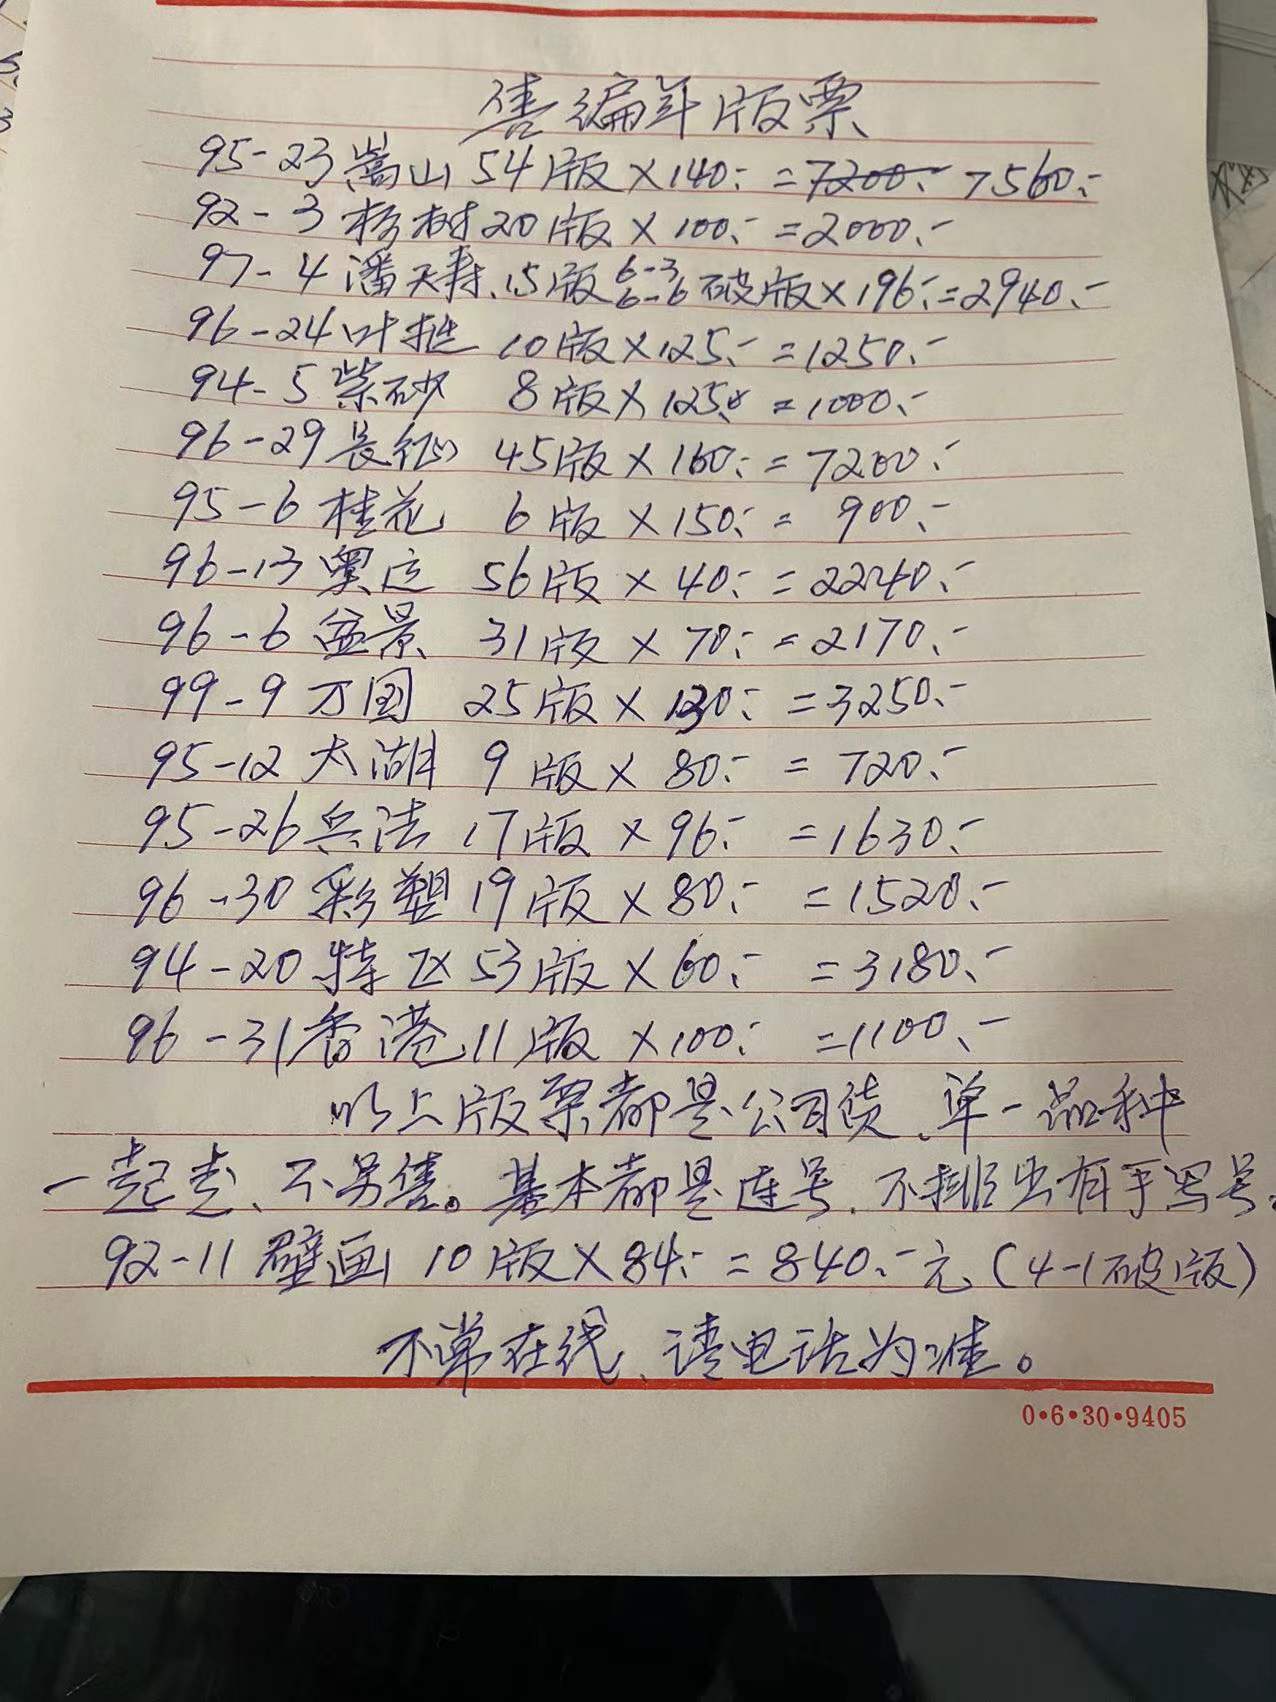 售编年版票
95-23嵩山 54版×140.- =7200.- 7560.-
92-3杉树20版×100.- =2000.-
97-4潘天寿.15版6-3 6-6破版×196.-=2940.-
96-24叶挺 10版×125.- =1250.-
94-5紫砂 8版×125.- =1000.-
96-29长征 45版×160.- =7200.-
95-6桂花 6版×150.- = 900.-
96-13奥运 56版×40.- =2240.-
96-6盆景 31版×70.- =2170.-
99-9万国 25版×130.- =3250.-
95-12太湖 9版×80.- =720.-
95-26兵法 17版×96.- =1630.-
96-30彩塑19版×80.- =1520.-
94-20特区53版×60.- =3180.-
96-31香港11版×100.- =1100.-
以上版票都是公司货、单一品种
一起走、不另售。基本都是连号、不排出有手写号。
92-11壁画10版×84.- =840.-元(4-1破1版)
不常在线、请电话为准。
0·6·30·9405